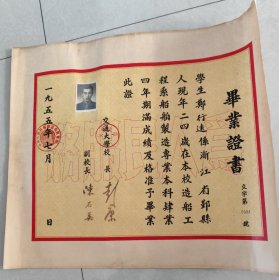 畢業證書
交字第 號
學生鄭行遠係浙江省鄞縣
人現年二四歲在本校造船工
程系船舶製造專業本科肄業
四年期滿成績及格准予畢業
此證
交通大學校長
副校長 陳石英
一九五五年七月 日